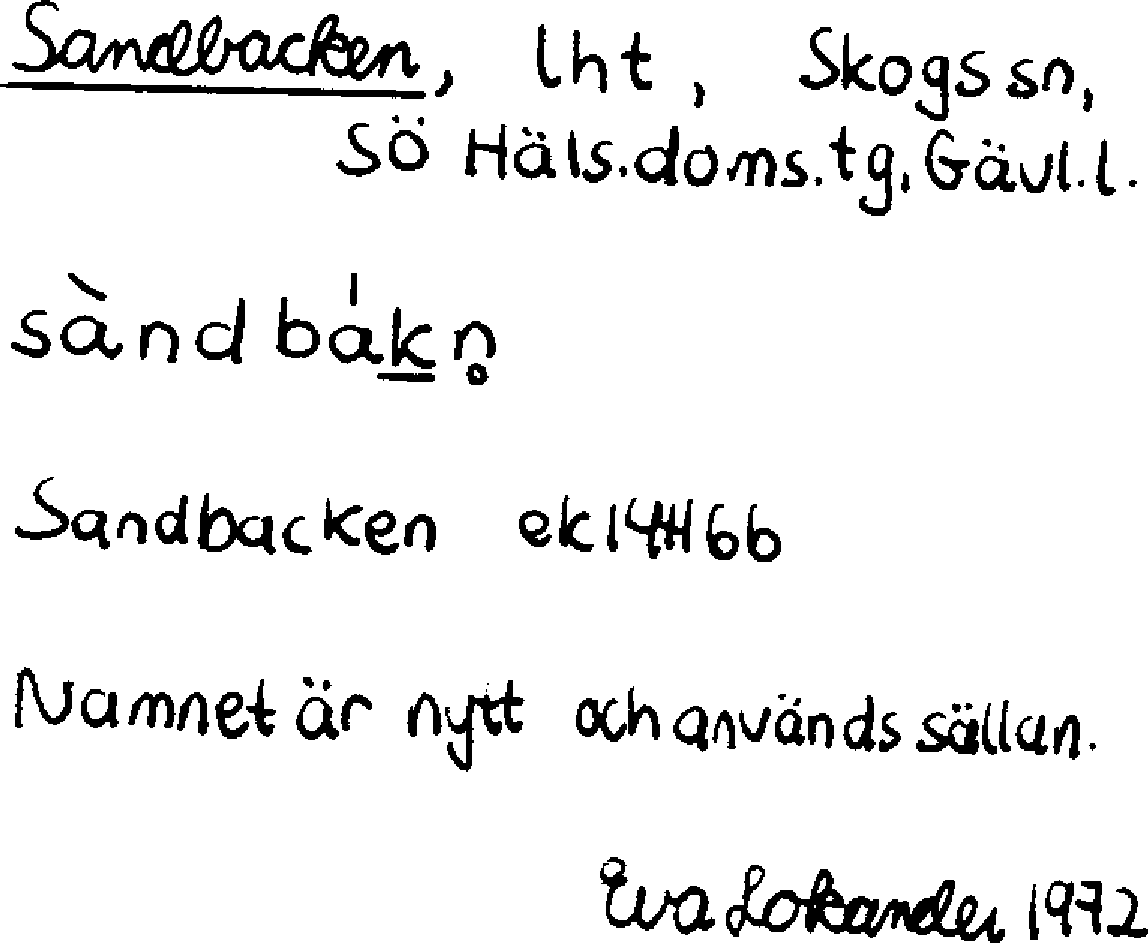 Sandbacken, lht, Skogs sn,
Sö Häls. doms. tg, Gävl. l.
sàndbák̲n̥
Sandbacken ek 14H6b
Namnet är nytt och används sällan.
Eva Lokander 1972